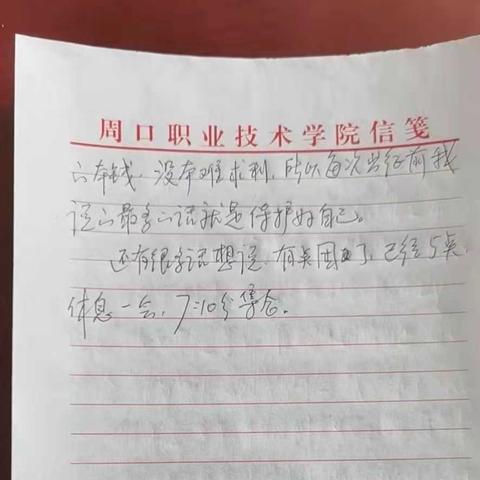 周口职业技术学院信笺
的本钱,没本难求利,所以每次出征前我
说的最多的话就是保护好自己。
还有很多话想说,有点困了,已经5点,
休息一会,7:10分集合。